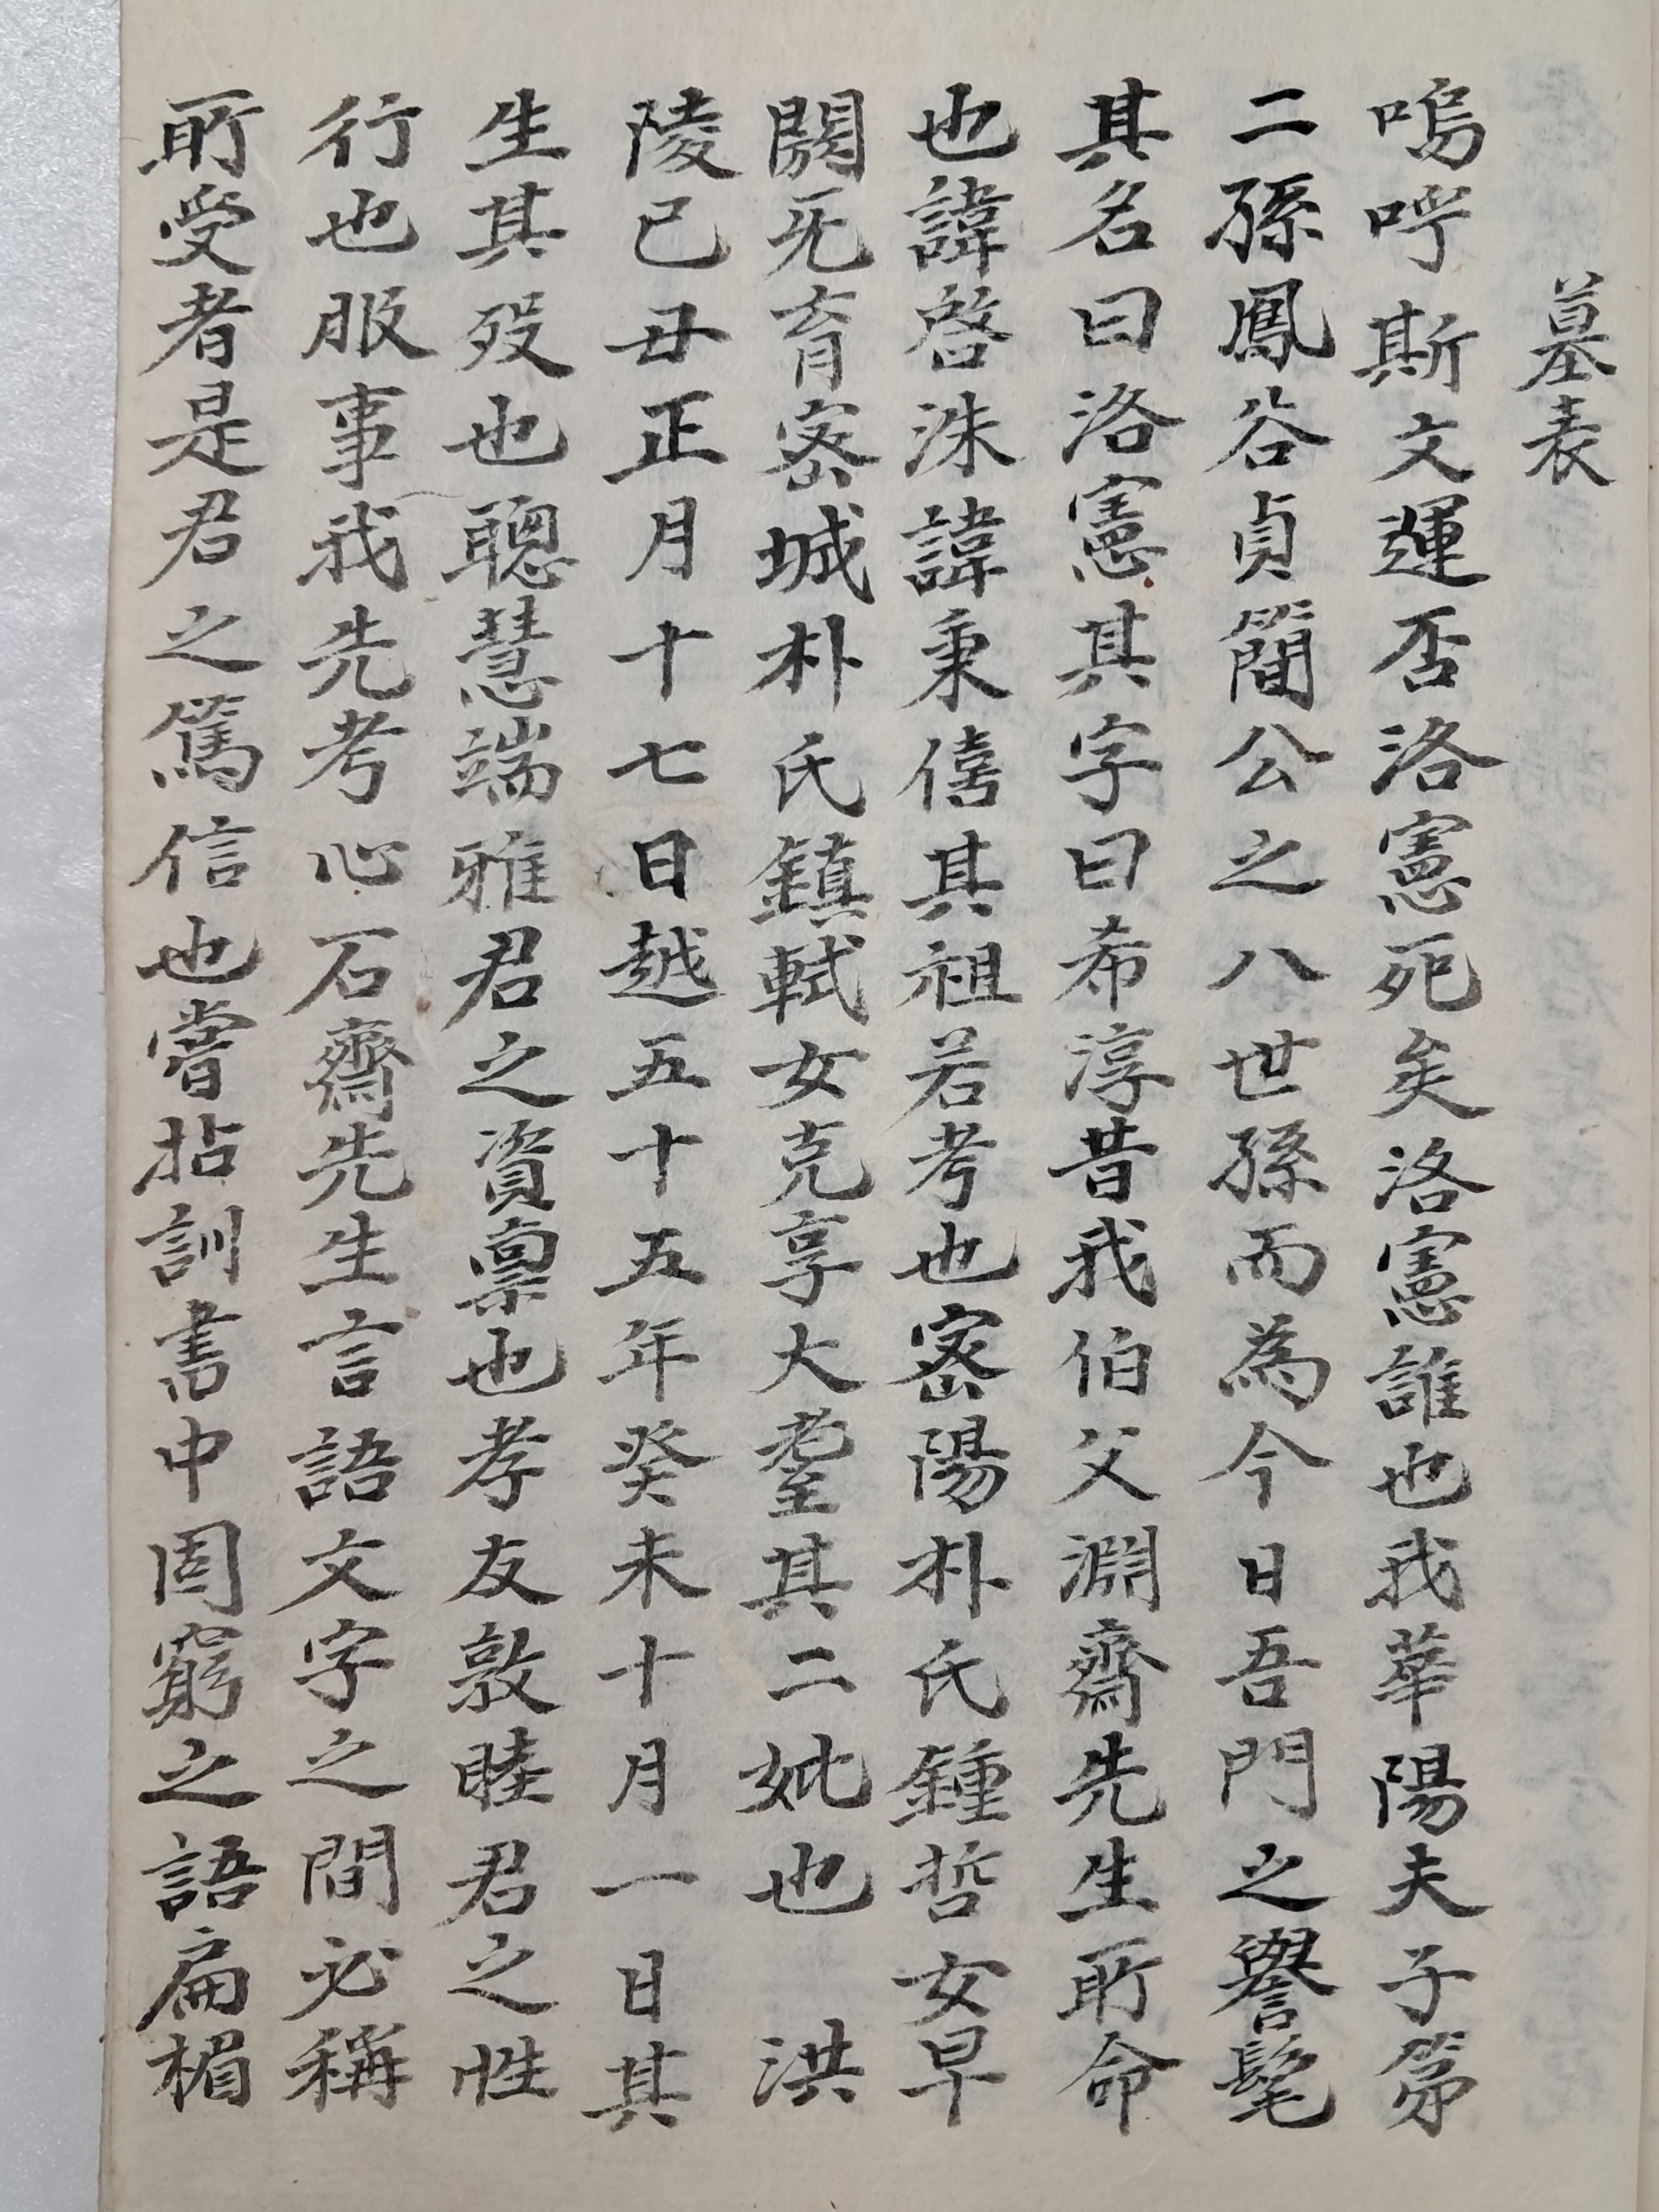 墓表
嗚呼斯文運否洛憲死矣洛憲誰也我華陽夫子第
二孫鳳谷貞簡公之八世孫而為今日吾門之譽髦
其名曰洛憲其字曰希淳昔我伯父淵齋先生所命
也諱啓洙諱秉僖其祖若考也密陽朴氏鍾哲女早
閼旡育密城朴氏鎮軾女克享大耋其二妣也 洪
陵己丑正月十七日越五十五年癸未十月一日其
生其歿也聰慧端雅君之資稟也孝友敦睦君之性
行也服事我先考心石齋先生言語文字之間必稱
所受者是君之篤信也嘗拈訓書中固窮之語扁楣